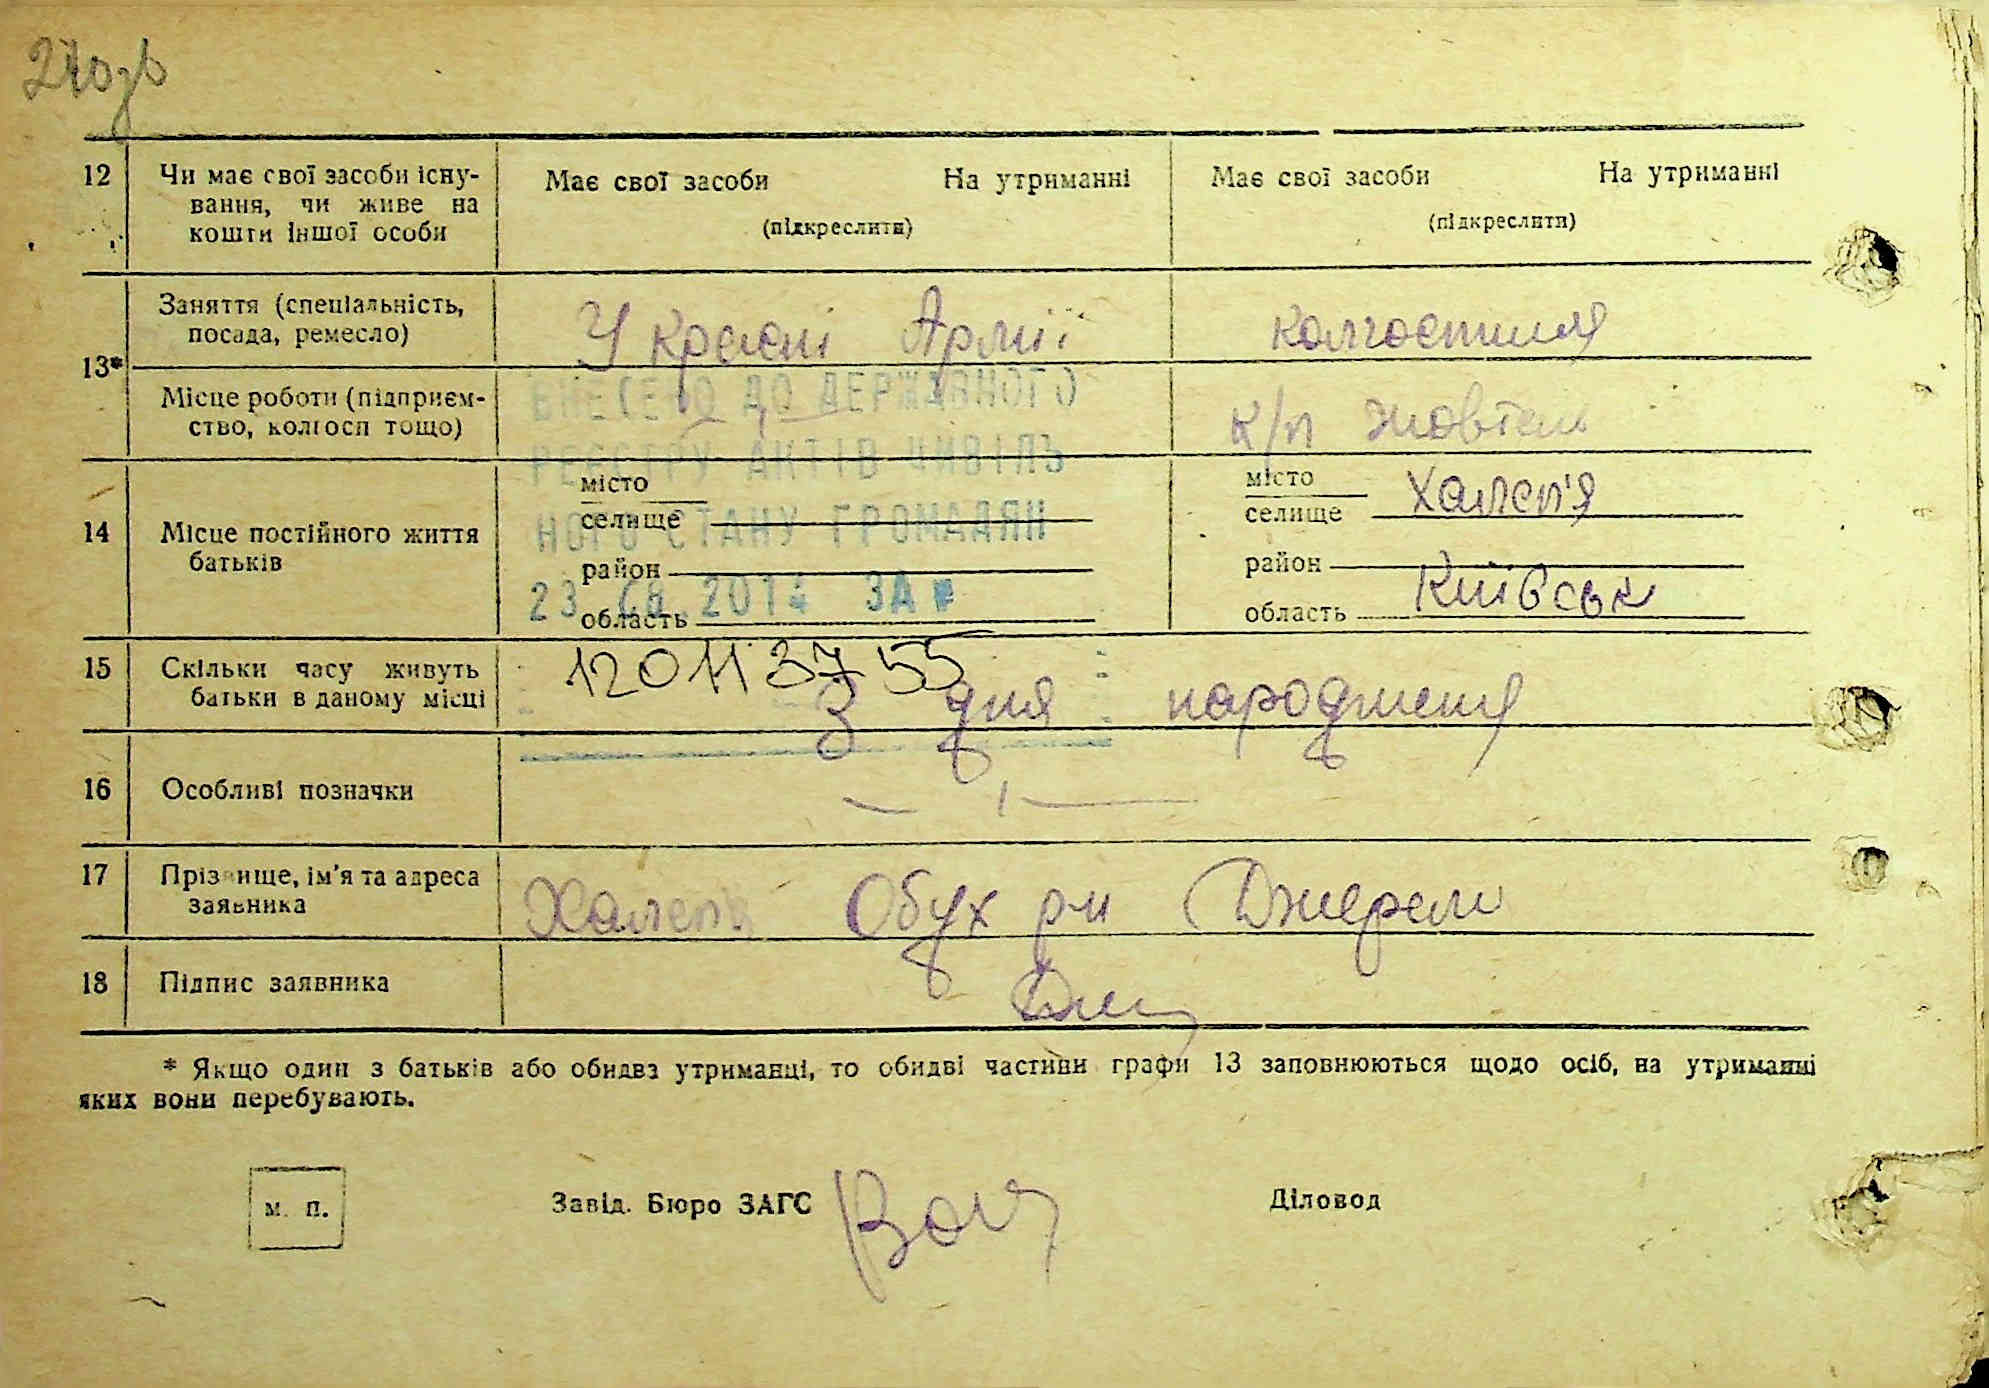 12 Чи має свої засоби існу- Має свої засоби На утриманні Має свої засоби На утриманні
вання, чи живе на (підкреслити) (підкреслити)
кошти іншої особи
Заняття (спеціальність, У красні Армії колгоспниця
посада, ремесло)
13*
Місце роботи (підприєм- к/г Жовтень
ство, колгосп тощо)
ВНЕСЕНО ДО ДЕРЖАВНОГО
РЕЄСТРУ АКТІВ ЦИВІЛЬ
НОГО СТАНУ ГРОМАДЯН
23 201 ЗА №
120113755
14 Місце постійного життя
батьків
місто
селище
район
область
місто Халеп'я
селище
район
область Київськ
15 Скільки часу живуть З дня народження
батьки в даному місці
16 Особливі позначки
17 Прізвище, ім'я та адреса Халеп'я Обух р-н Джерело
заявника
18 Підпис заявника
* Якщо один з батьків або обидва утриманці, то обидві частини графи 13 заповнюються щодо осіб, на утриманні
яких вони перебувають.
м. п. Завід. Бюро ЗАГС Діловод